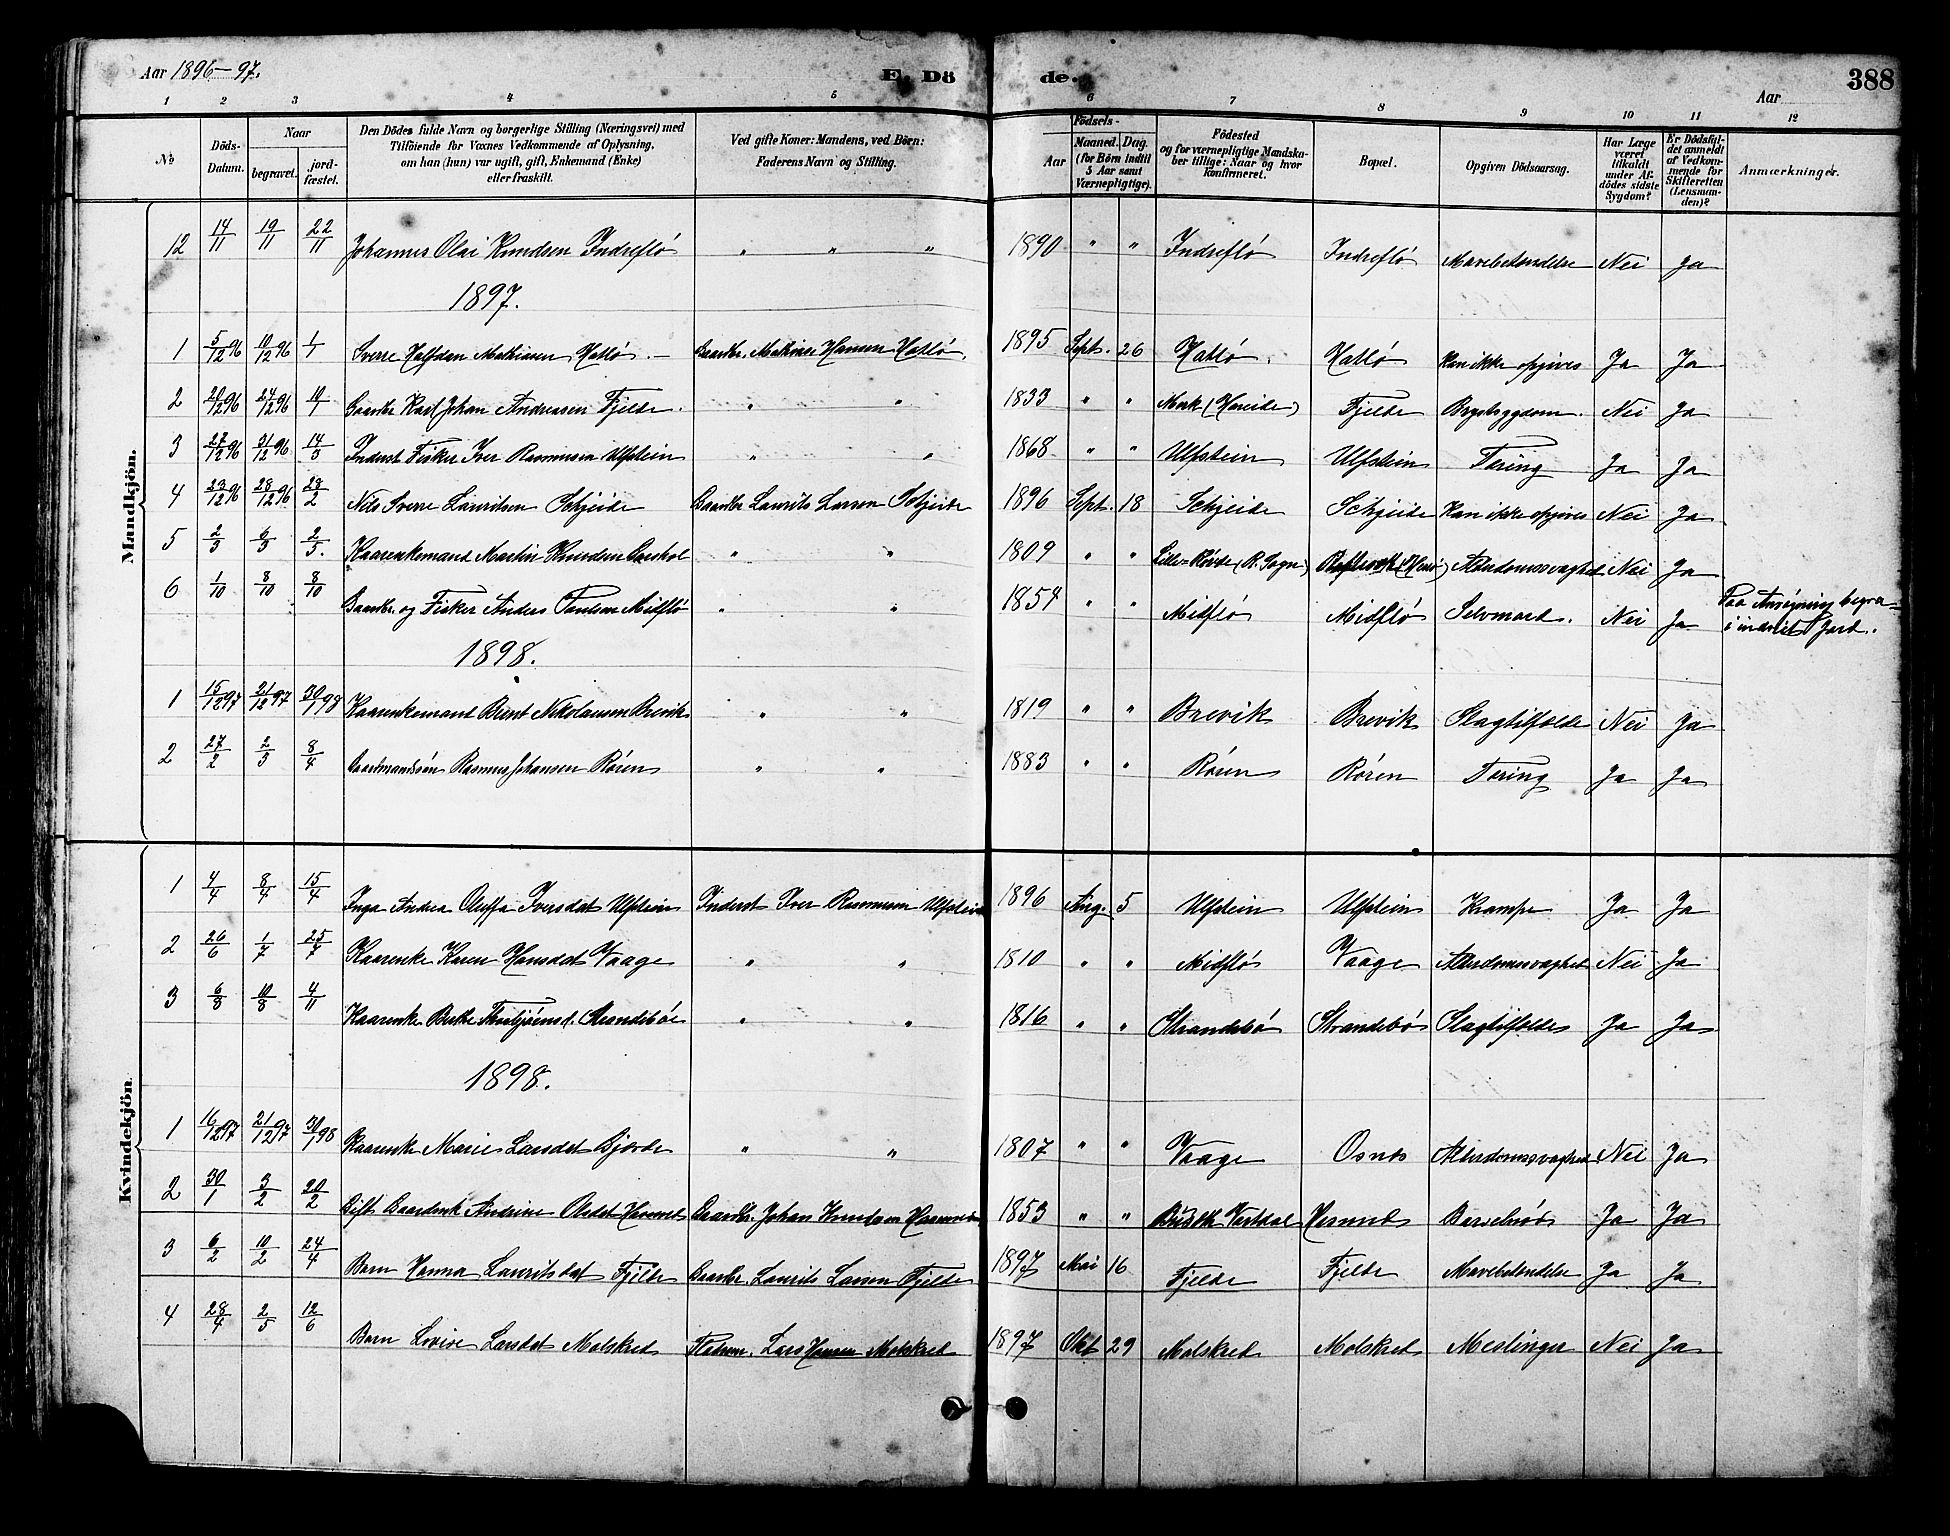 Aar 1896-97. E. Döde. Aar 388
1 2 3 4 5 6 7 8 9 10 11 12
No Döds-Datum. Naar begravet. jordfæstet. Den Dödes fulde Navn og borgerlige Stilling (Næringsvei) med Tilföiende for Voxnes Vedkommende af Oplysning, om han (hun) var ugift, gift, Enkemand (Enke) eller fraskilt. Ved gifte Koner: Mandens, ved Börn: Faderens Navn og Stilling. Födsels- Aar Maaned. Dag. (for Börn indtil 5 Aar samt Værnepligtige). Födested og for værnepligtige Mandskaber tillige: Naar og hvor konfirmeret. Bopæl. Opgiven Dödsaarsag. Har Læge været tilkaldt under Afdödes sidste Sygdom? Er Dödsfaldet anmeldt af Vedkommende for Skifteretten (Lensmanden)? Anmærkninger.
Mandkjön.
12 14/11 19/11 22/11 Johannes Olai Knudsen Indreflö " " " 1890 " " Indreflö Indreflö Mavebetændelse Nei Ja
1897.
1 5/12 96 10/12 96 1/1 Sverre Halfdan Mathisen Hatlö. Gaardbr. Mathias Hansen Hatlö. 1895 Sept. 26 Hatlö. Hatlö Kan ikke opgives Ja Ja
2 20/12 96 24/12 96 10/1 Gaardbr Karl Johan Andreasen Fjelde. " " 1833 " " Mork (Hareide) Fjelde Brystsygdom. Nei Ja
3 27/12 96 31/12 96 14/3 Inderst Fisker Iver Rasmusen Ulfstein " " 1868 " " Ulfstein Ulfstein Tæring Ja Ja
4 23/12 96 28/12 96 28/2 Nils Sverre Lauritsen Schjeide Gaardbr Laurits Larsen Schjeide 1896 Sept. 18 Schjeide Schjeide Kan ikke opgives Nei Ja
5 2/3 6/3 2/5. Kaarenkemand Martin Knudsen " " 1809 " " Lille-Rövde (R. Sogn) Alderdomssvaghed Nei Ja
6 1/10 8/10 8/10 Gaardbr. og Fisker Anders Paulsen Midflö " " 1854 " " Midflö Midflö Selvmord. Nei Ja Paa Ansögning begra- i indviet Jord.
1898.
1 15/12 97 21/12 97 30/1 98 Kaarenkemand Bernt Nikolausen Brevik " " 1819 " " Brevik Brevik Slagtilfælde Nei Ja
2 27/2 2/3 8/4 Gaardmandssön Rasmus Johansen Rören " " 1883 " " Rören Rören Tæring Ja Ja
Kvindekjön.
1 4/4 8/4 15/4 Inga Andrea Oluffa Iversdat Ulfstein Inderst Iver Rasmusen Ulfstein 1896 Aug. 5 Ulfstein Ulfstein Krampe Ja Ja
2 26/6 1/7 25/7 Kaarenke Karen Hansdat Vaage " " 1810 " " Midflö Vaage Alderdomssvaghed Nei Ja
3 6/8 10/8 4/11 Kaarenke Berthe Thorbjörnsd. Strandebö " " 1816 " " Strandebö Strandebö Slagtilfælde Ja Ja
1898.
1 16/12 97 21/12 97 30/1 98 Kaarenke Marie Larsdat Gjerde " " 1807 " " Vaage Osnes Alderdomssvaghed Nei Ja
2 30/1 3/2 20/2 Gift Gaardenk Andrine Olsdat Gaardbr. Johan Knudsen 1853 " " Barselnöd Ja Ja
3 6/2 10/2 24/4 Barn Hanna Lauritsdat Fjelde Gaardbr. Laurits Larsen Fjelde 1897 Mai 16 Fjelde Fjelde Mavebetændelse Ja Ja
4 28/4 2/5 12/6 Barn Lovise Larsdat Molskred Pladsm. Lars Hansen Molskred 1897 Okt 29 Molskred Molskred Meslinger Nei Ja